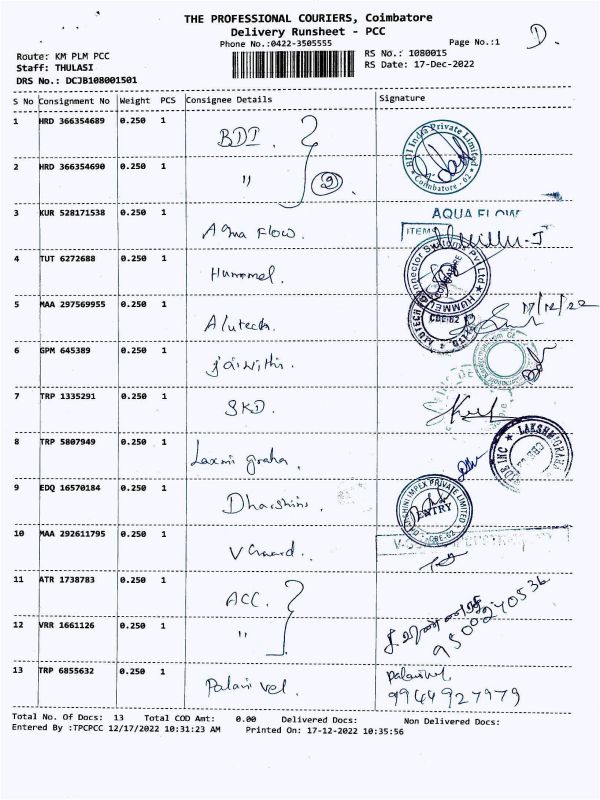 THE PROFESSIONAL COURIERS, Coimbatore
Delivery Runsheet - PCC
Phone No.:0422-3505555
Page No.:1
D.
Route: KM PLM PCC
RS No.: 1080015
Staff: THULASI
RS Date: 17-Dec-2022
DRS No.: DCJB108001501
S No Consignment No Weight PCS Consignee Details Signature
1 HRD 366354689 0.250 1 BDI. BDI India Private Limited Coimbatore - 62
2 HRD 366354690 0.250 1 " (2)
3 KUR 528171538 0.250 1 Aqua Flow. AQUA FLOW ITEMS
4 TUT 6272688 0.250 1 Hummel. HUMMEL Connector Systems Pvt Ltd COIMBATORE
5 MAA 297569955 0.250 1 Alutech. ALUTECH CBE-62 17/12/22
6 GPM 645389 0.250 1
7 TRP 1335291 0.250 1 SKD.
8 TRP 5807949 0.250 1 Laxmi graha. LAKSHMIGRAHA INC
9 EDQ 16570184 0.250 1 Dharshini. DHARSHINI IMPEX PRIVATE LIMITED ENTRY CBE-62
10 MAA 292611795 0.250 1 V Guard.
11 ATR 1738783 0.250 1 ACC.
12 VRR 1661126 0.250 1 " 9500240536
13 TRP 6855632 0.250 1 Palani vel. Palanivel
9944927979
Total No. Of Docs: 13 Total COD Amt: 0.00 Delivered Docs: Non Delivered Docs:
Entered By :TPCPCC 12/17/2022 10:31:23 AM Printed On: 17-12-2022 10:35:56